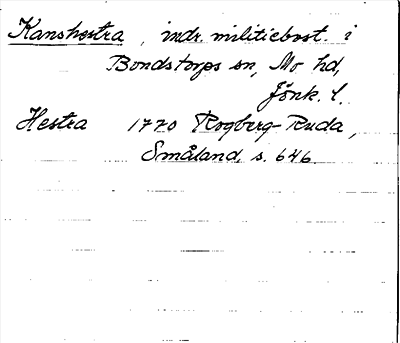 Kanshestra, indr. militiebost. i
Bondstorps sn, Mo hd,
Jönk. l.
Hestra 1770 Rogberg-Ruda,
Småland, s. 646.